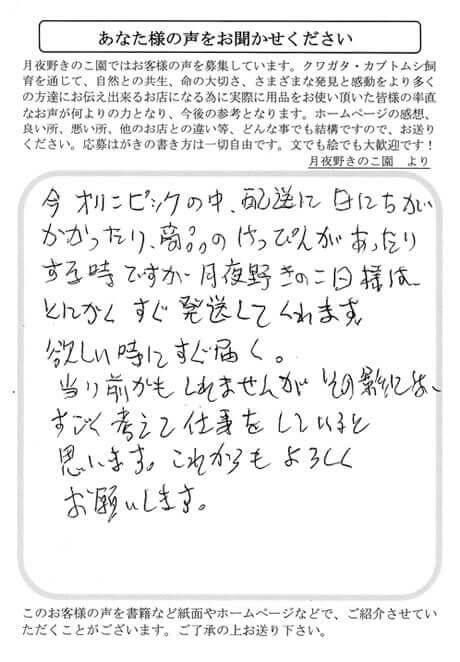 あなた様の声をお聞かせください
月夜野きのこ園ではお客様の声を募集しています。クワガタ・カブトムシ飼
育を通じて、自然との共生、命の大切さ、さまざまな発見と感動をより多く
の方達にお伝え出来るお店になる為に実際に用品をお使い頂いた皆様の率直
なお声が何よりの力となり、今後の参考となります。ホームページの感想、
良い所、悪い所、他のお店との違い等、どんな事でも結構ですので、お送り
ください。応募はがきの書き方は一切自由です。文でも絵でも大歓迎です！
月夜野きのこ園 より
今オリンピックの中、配送に日にちが
かかったり、商品のけっぴんがあったり
する時ですが月夜野きのこ園様は
とにかくすぐ発送してくれます。
欲しい時にすぐ届く。
当り前かもしれませんがその影には、
すごく考えて仕事をしていると
思います。これからもよろしく
お願いします。
このお客様の声を書籍など紙面やホームページなどで、ご紹介させてい
ただくことがございます。ご了承の上お送り下さい。